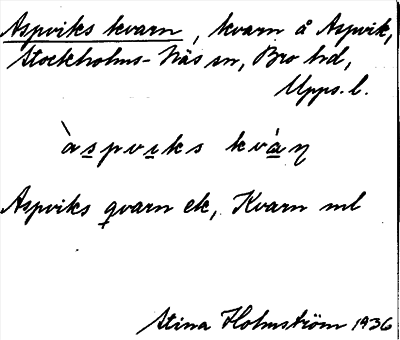 Aspviks kvarn, kvarn å Aspvik,
Stockholms-Näs sn, Bro hd,
Upps. l.
àspviks kvàɳ
Aspviks qvarn ek, Kvarn ml
Stina Holmström 1936